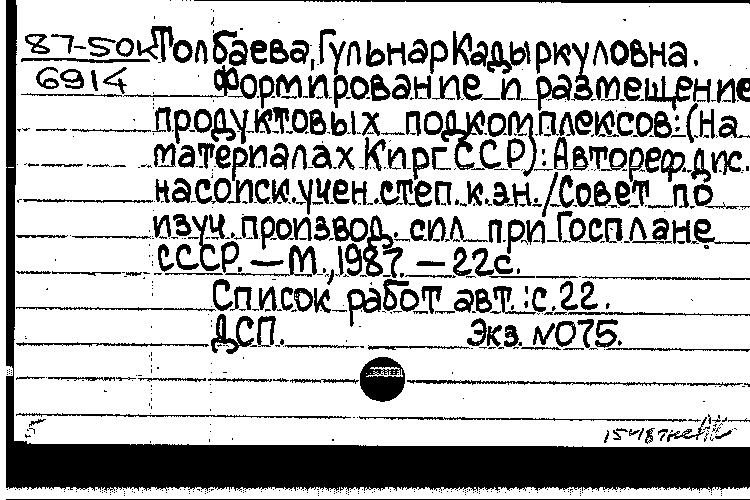 87-50к Толбаева, Гульнар Кадыркуловна.
6914 Формирование и размещение
продуктовых подкомплексов: (На
материалах КиргССР): Автореф.дис.
на соиск.учен.степ.к.эн./Совет по
изуч.производ. сил при Госплане
СССР. — М., 1987. — 22с.
Список работ авт.: с.22.
ДСП. Экз. №075.
5